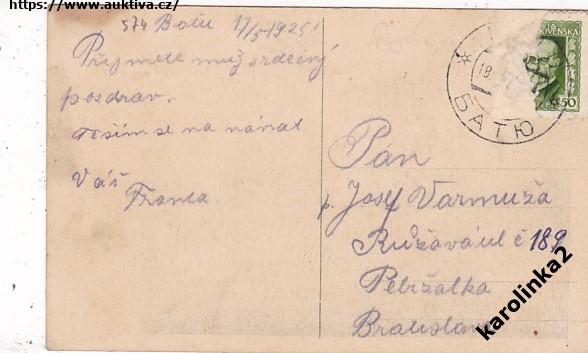 https://www.auktiva.cz/
574 Baťu 17/5 1925
Prijmete muž srdečný
pozdrav.
Teším se na návrat
Váš
Franta
18.
БАТЮ
SLOVENSKÁ
50
Pán
p. Josef Varmuža
Růžová ul č 189
Petržalka
Bratislava
karolinka2